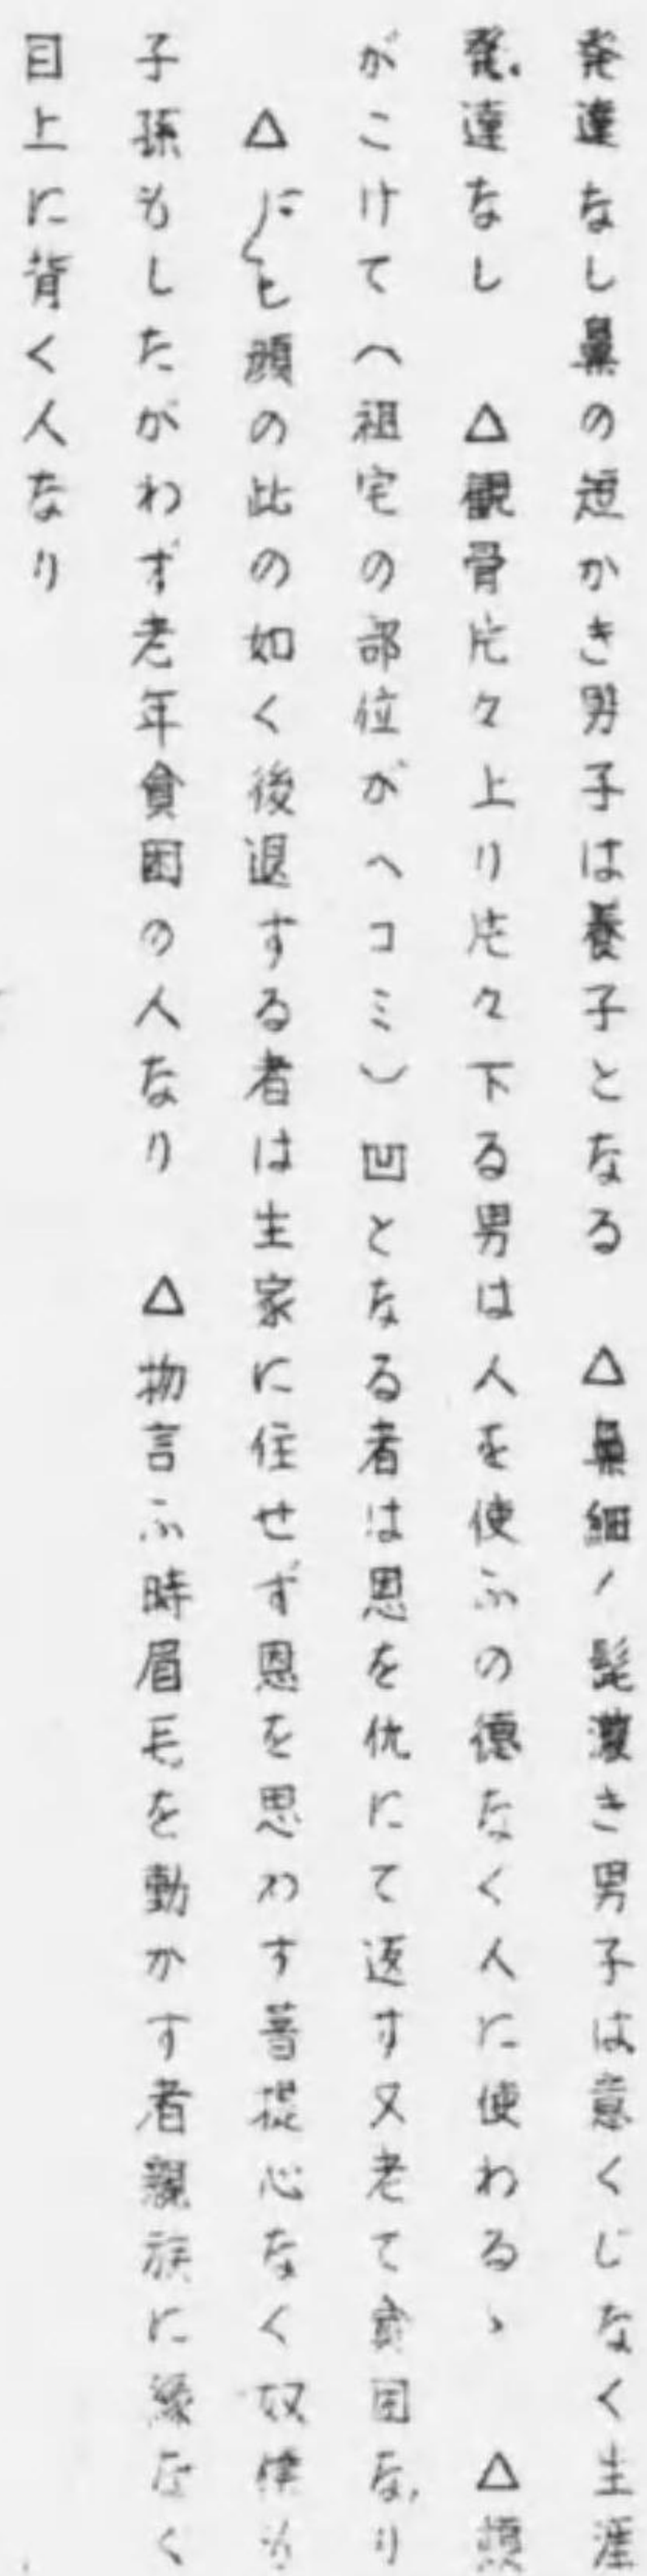 発達なし鼻の短かき男子は養子となる　△鼻細ク髭濃き男子は意くじなく生涯
発達なし　△観骨片々上り片々下る男は人を使ふの徳なく人に使わるゝ　△頤
がこけて（祖宅の部位がヘコミ）凹となる者は恩を仇にて返す又老て貧困なり
△にも頤の此の如く後退する者は生家に住せず恩を思わず菩提心なく奴僕も
子孫もしたがわず老年貧困の人なり　△物言ふ時眉毛を動かす者親族に縁なく
目上に背く人なり